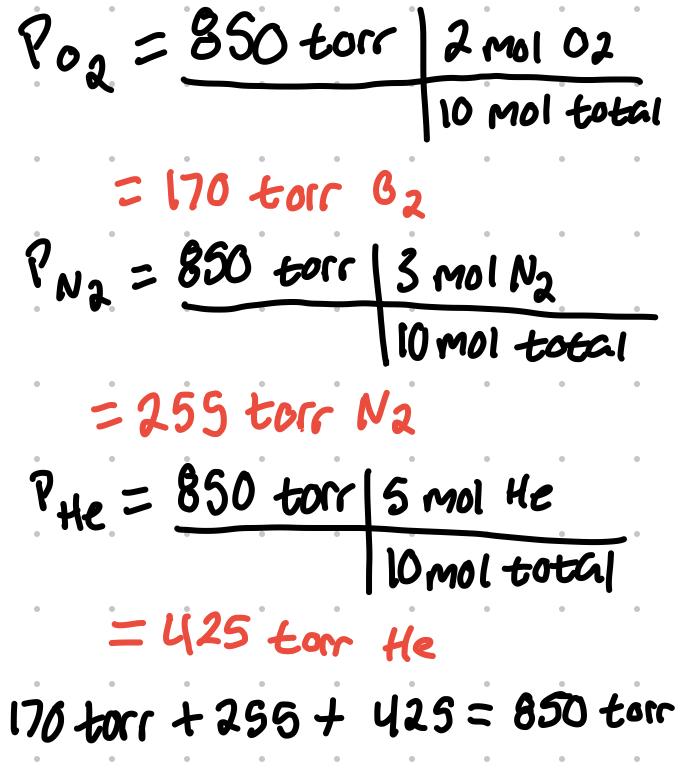 P O2 = 850 torr | 2 mol O2
10 mol total
= 170 torr O2
P N2 = 850 torr | 3 mol N2
10 mol total
= 255 torr N2
P He = 850 torr | 5 mol He
10 mol total
= 425 torr He
170 torr + 255 + 425 = 850 torr